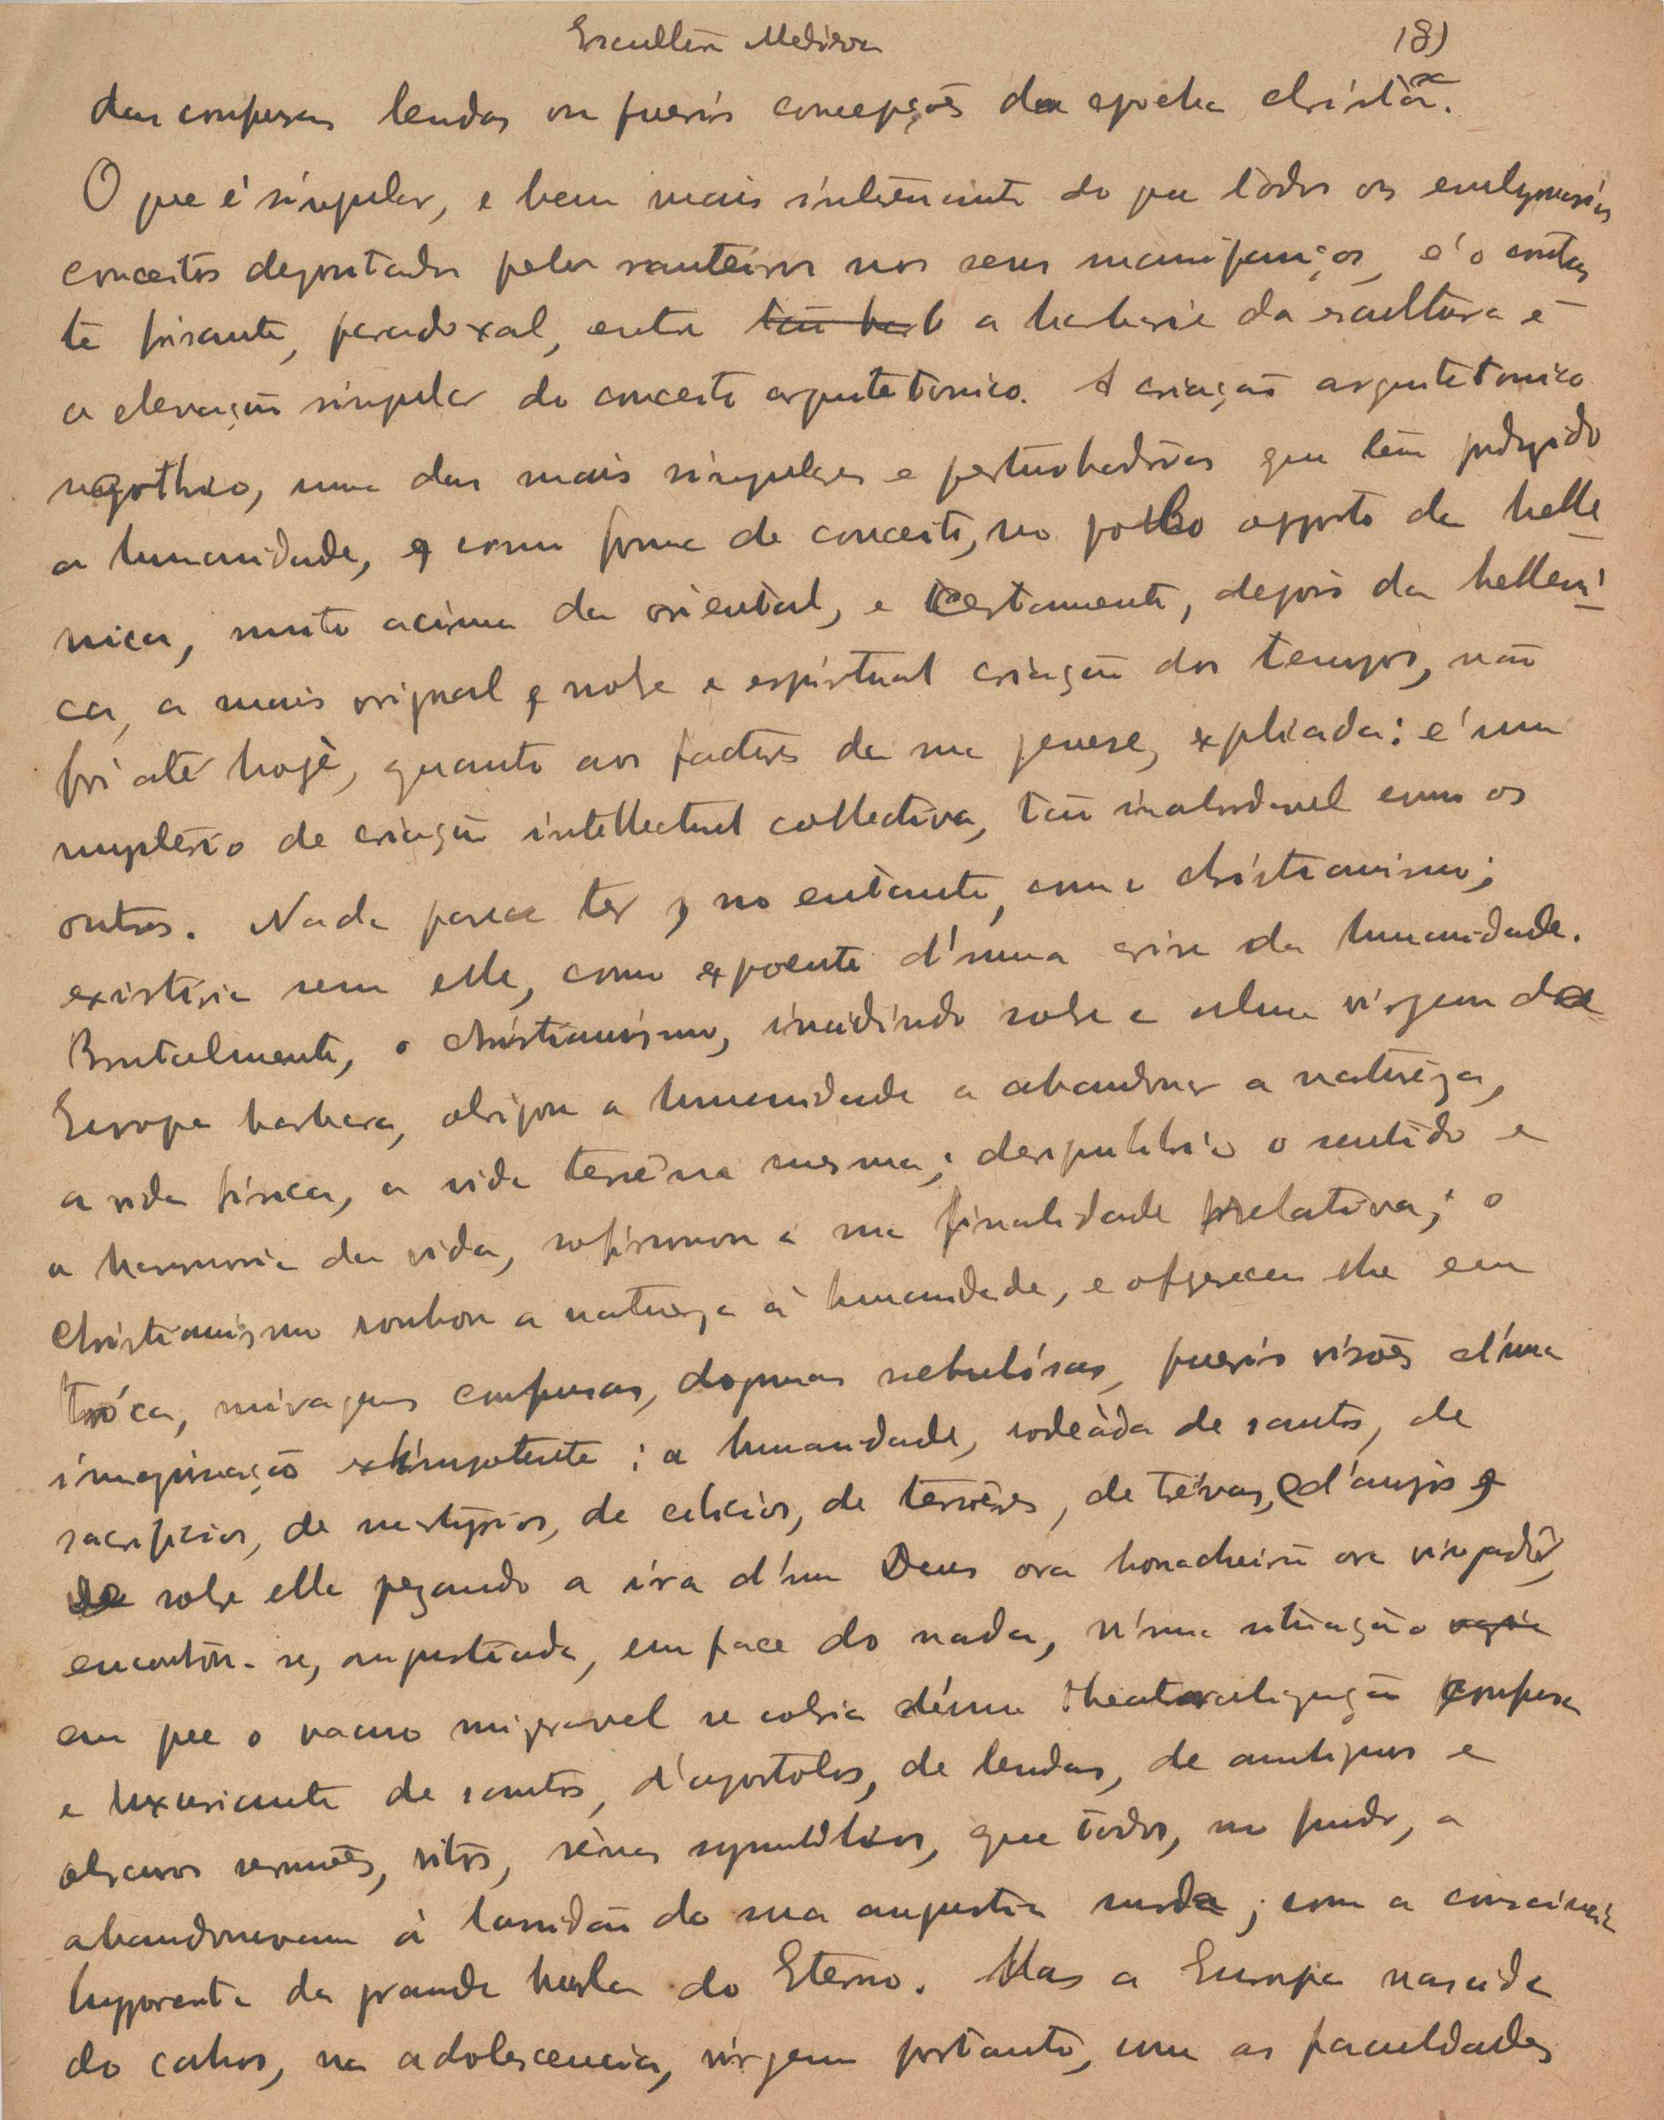 Escultura Medieva 18)
das confusas lendas ou pueris concepções da epocha christã.
O que é singular, e bem mais interessante do que todos os
conceitos depontados pelos santeiros nos seus manipanços, é o contras
te frisante, paradoxal, entre tão barb a barbarie da escultura e
a elevação singular do conceito arquitetonico. A criação arquitetonica
gothica, uma das mais singulares e perturbadoras que tem produzido
a humanidade, e como forma de conceito, no pollo opposto da helle
nica, muito acima da oriental, e certamente, depois da helleni
ca, a mais original e nobre e espiritual criação dos tempos, não
foi até hoje, quanto aos factores da sua genese, explicada: é um
mysterio de criação intellectual collectiva, tão inabordavel como os
outros. Nada parece ter, no entanto, com o christianismo;
existiria sem elle, como expoente d'uma crise da humanidade.
Brutalmente, o christianismo, incidindo sobre a alma virgem da
Europa barbara, obrigou a humanidade a abandonar a natureza,
a vida fisica, a vida terrêna mesma; desiquilibrio o sentido e
a harmonia da vida, a sua finalidade relativa; o
christianismo roubou a natureza á humanidade, e offereceu lhe em
tróca, miragens confusas, dogmas nebulósos, pueris visões d'uma
imaginação impotente: a humanidade, rodeáda de santos, de
sacrificios, de martyrios, de cilicios, de terrôres, de trévas, e d'anjos e
sobre elle pezando a ira d'um Deus ora bonacheirão ora vingadôr,
encontra-se, angustiada, em face do nada, n'uma situação vazia
em que o vacuo mizeravel se cobria d'uma theatralização confusa
e luxuriante de santos, d'apostolos, de lendas, de ambiguos e
obscuros sermões, ritos, sênas symbolicas, que todos, no fundo, a
abandonavam á lassidão da sua angustia surda; com a consciencia
da grande burla do Eterno. Mas a Europa nascida
do cahos, na adolescencia, virgem portanto, com as faculdades